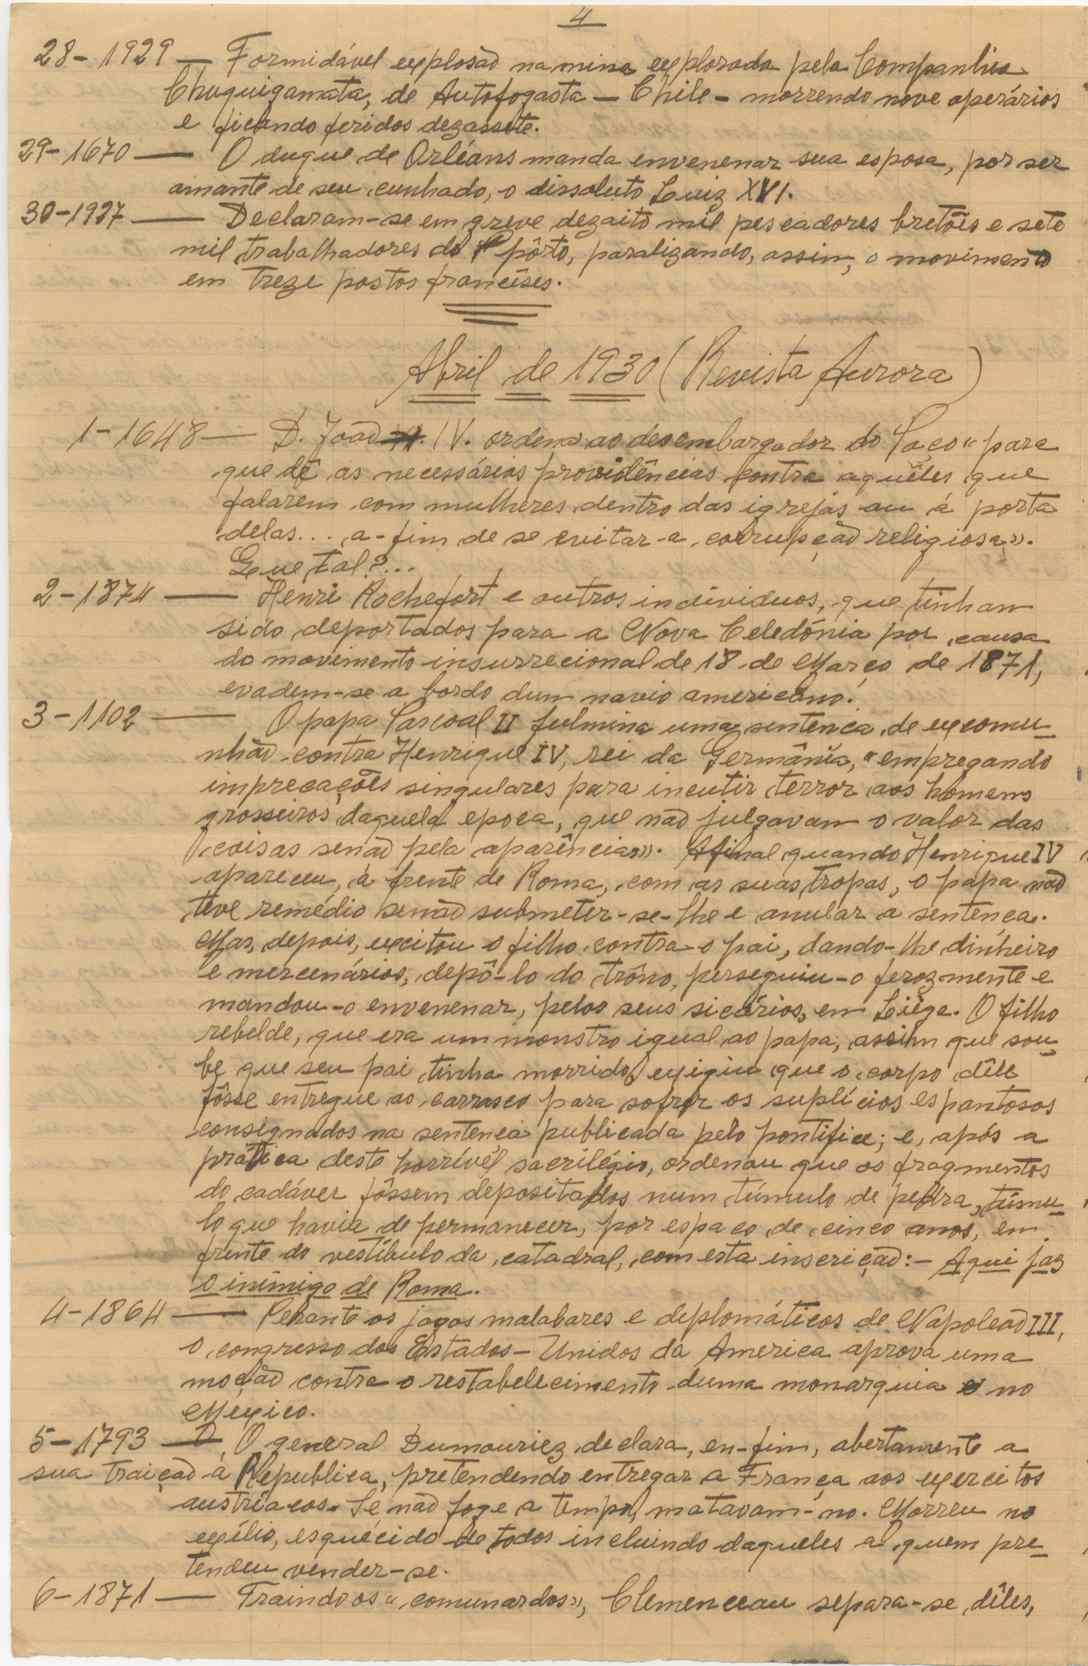 4
28-1929 — Formidável explosão na mina explorada pela Companhia
Chuquigamata, de Autofogasta — Chile — morrendo nove operários
e ficando feridos dezassete.
29-1670 — O duque de Orléans manda envenenar sua esposa, por ser
amante de seu cunhado, o dissoluto Luiz XVI.
30-1927 — Declaram-se em greve dezaito mil pescadores bretões e sete
mil trabalhadores do pôrto, paralizando, assim, o movimento
em treze postos francêses.
Abril de 1930 (Revista Aurora)
1-1648 — D. João IV. ordena ao desembargador do Paço «para
que dê as necessárias providências contra aquêles que
falarem com mulheres dentro das igrejas ou á porta
delas... a-fim de se evitar a corrupção religiosa».
Que tal?...
2-1874 — Henri Rochefort e outros individuos, que tinham
sido deportados para a Nova Celedónia por causa
do movimento insurrecional de 18 de Março de 1871,
evadem-se a bordo dum navio americano.
3-1102 — O papa Pascoal II fulmina uma sentença de excomu-
nhão contra Henrique IV, rei da Germânia, «empregando
imprecações singulares para incutir terror aos homens
grosseiros daquela epoca, que não julgavam o valor das
coisas senão pela aparência». Afinal quando Henrique IV
apareceu, á frente de Roma, com as suas tropas, o papa não
teve remédio senão submeter-se-lhe e anular a sentença.
Mas, depois, excitou o filho contra o pai, dando-lhe dinheiro
e mercenários, depô-lo do trôno, perseguiu-o ferozmente e
mandou-o envenenar, pelos seus sicários, em Liège. O filho
rebelde, que era um monstro igual ao papa, assim que sou-
be que seu pai tinha morrido, exigiu que o corpo dêle
fôsse entregue ao carrasco para sofrer os suplícios espantosos
consignados na sentença publicada pelo pontifice; e, após a
prática deste horrível sacrilégio, ordenou que os fragmentos
do cadáver fôssem depositados num túmulo de pedra, túmu-
lo que havia de permanecer, por espaço de cinco anos, em
frente do vestíbulo da catadral, com esta inscrição: — Aqui jaz
o inimigo de Roma.
4-1864 — Perante os jogos malabares e deplomáticos de Napoleão III,
o congresso dos Estados-Unidos da America aprova uma
moção contra o restabelecimento duma monarquia no
Mexico.
5-1793 — O general Dumouriez declara, en-fim, abertamente a
sua traição á Republica, pretendendo entregar a França aos exercitos
austríacos. Se não foge a tempo, matavam-no. Morreu no
exílio, esquecido de todos incluindo daqueles a quem pre-
tendeu vender-se.
6-1871 — Traindo os «comunardos», Clemenceau separa-se dêles,